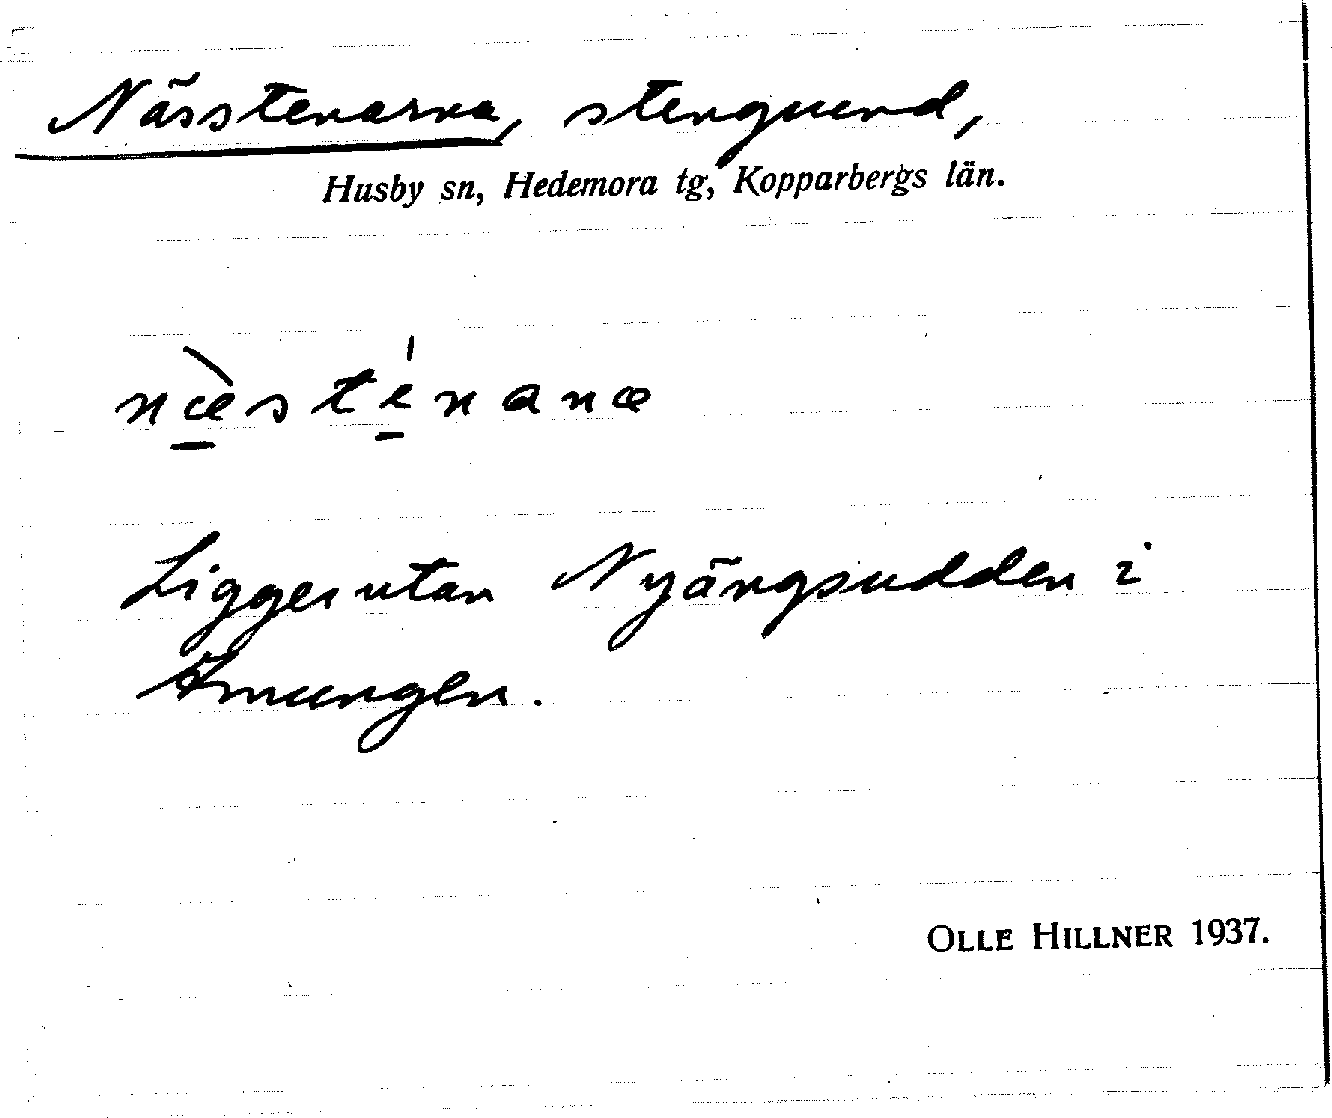 Nässtenarna, stengrund,
Husby sn, Hedemora tg, Kopparbergs län.
næ̀sténanæ
Ligger utan Nyängsudden i
Amungen.
OLLE HILLNER 1937.